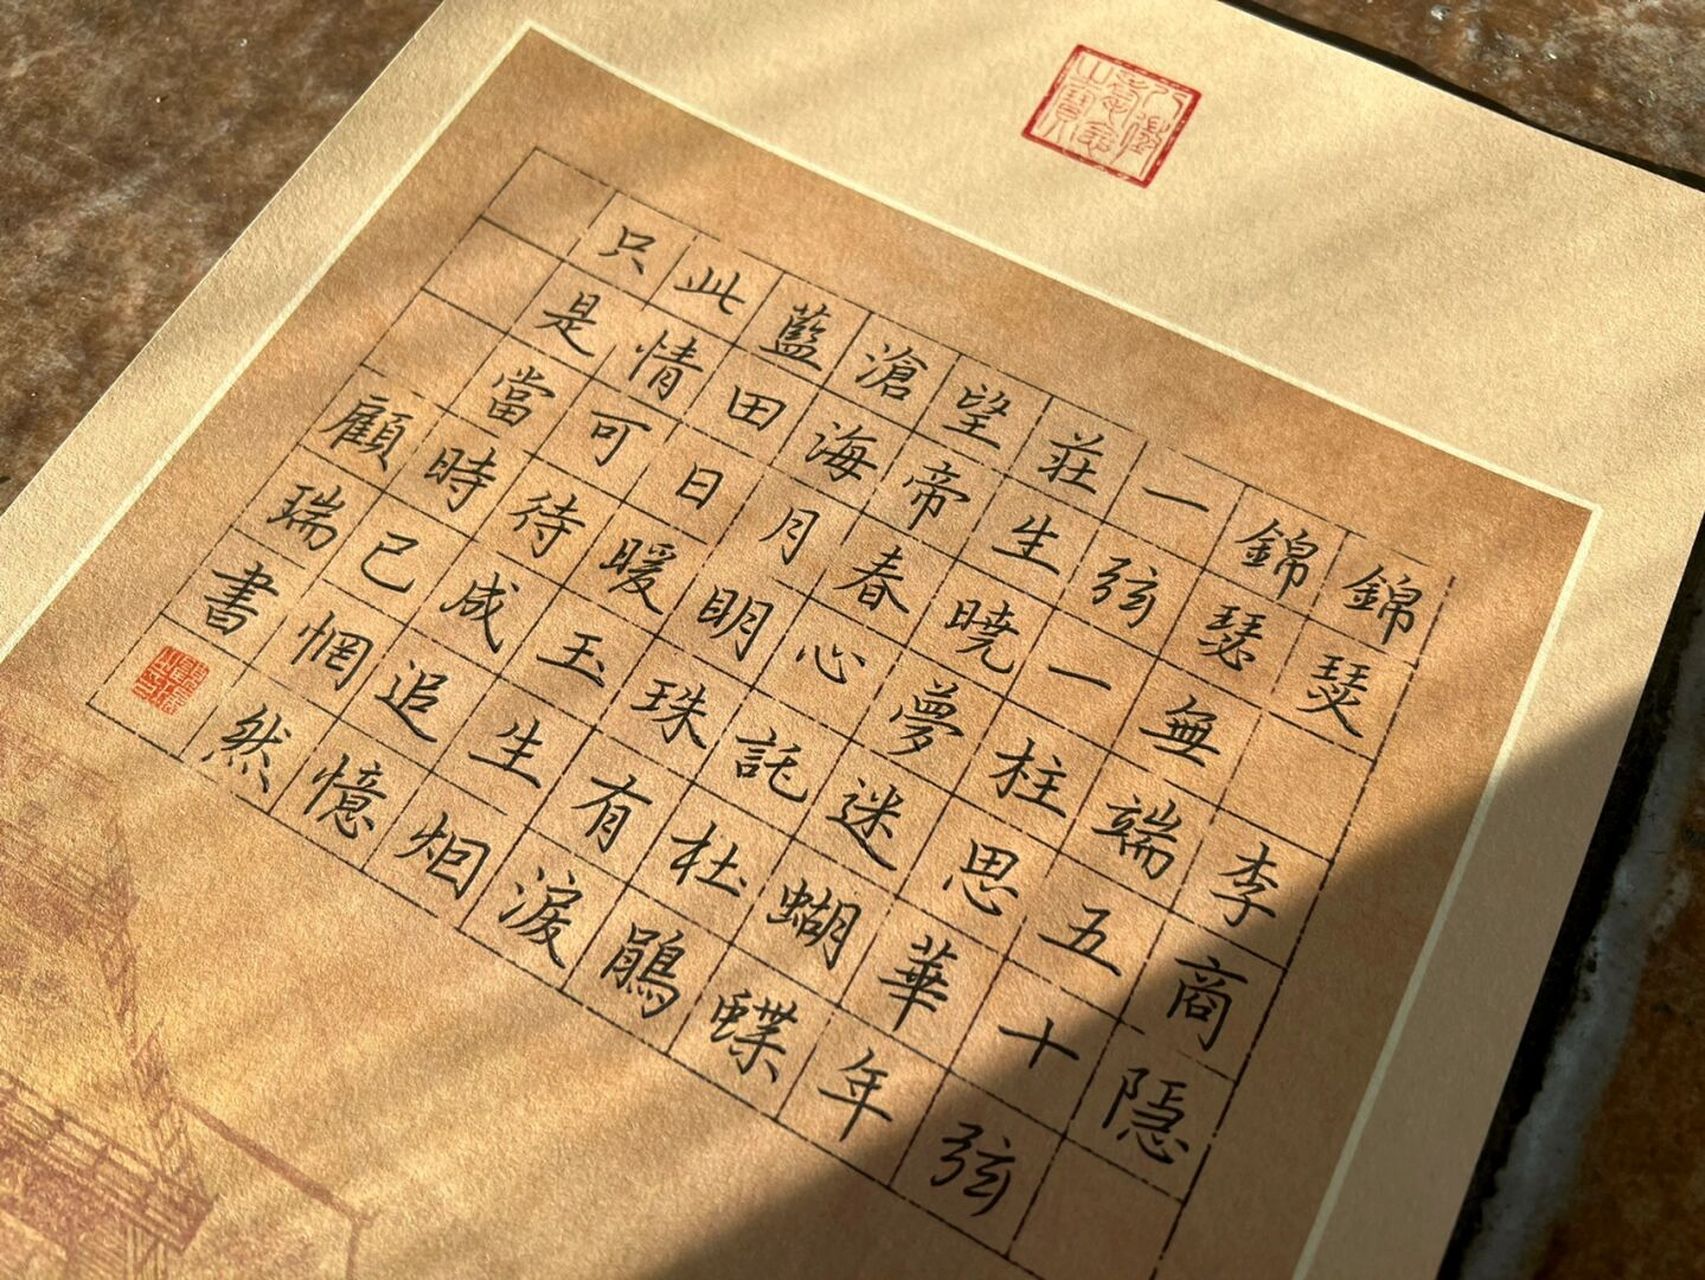 八徵耄念之寶
錦瑟 李商隱
錦瑟無端五十弦
一弦一柱思華年
莊生曉夢迷蝴蝶
望帝春心託杜鵑
滄海月明珠有淚
藍田日暖玉生烟
此情可待成追憶
只是當時已惘然
顧瑞書